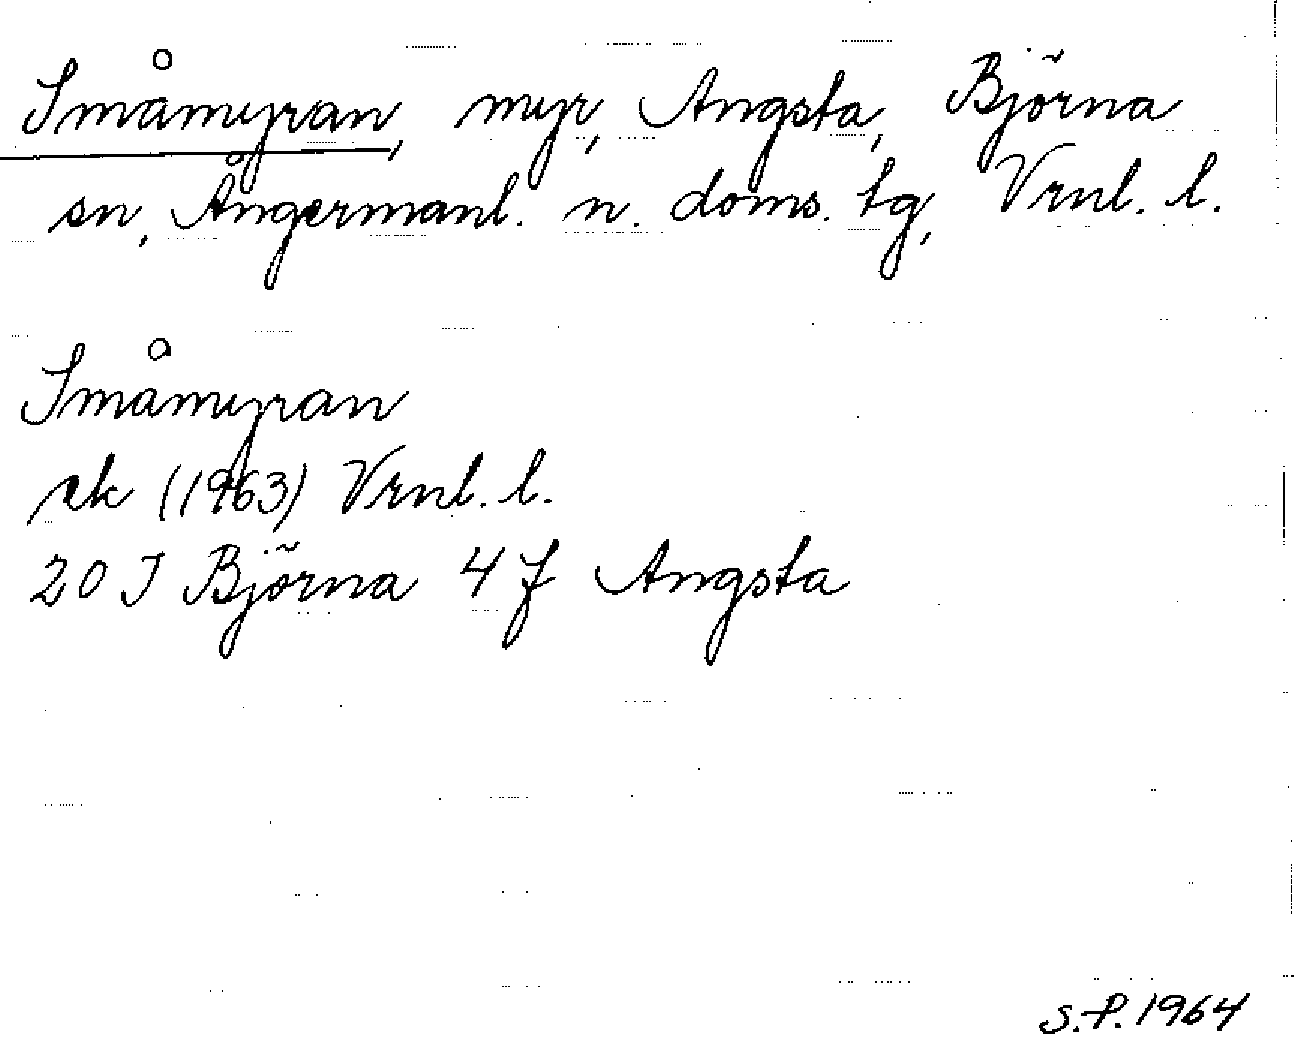 Småmyran, myr, Angsta, Björna
sn, Ångermanl. n. doms. tg, Vrnl. l.
Småmyran
ek (1963) Vrnl. l.
20 I Björna 4 f Angsta
S.P. 1964